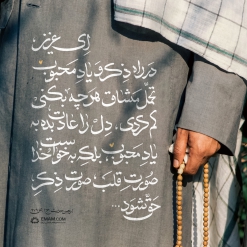 ای عزیز
در راه ذکر و یاد محبوب
تحمل مشاق هرچه بکنی
کم کردی. دل را عادت بده به
یاد محبوب، بلکه به خواست خدا
صورت قلب صورت ذکر
حق شود...